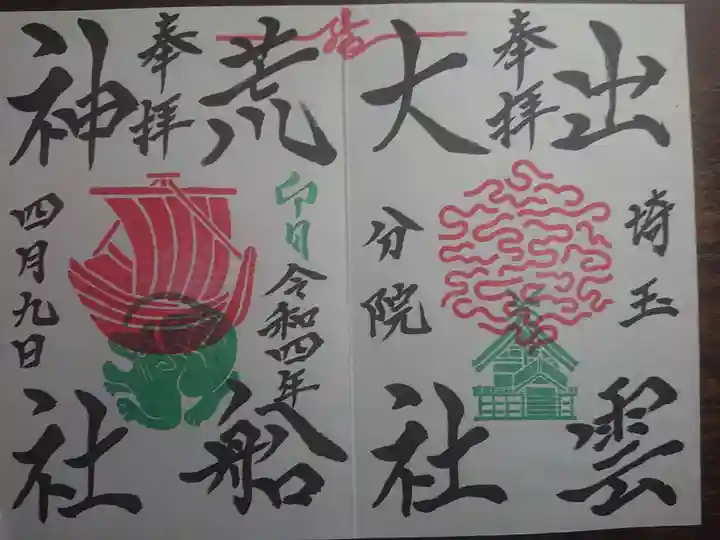 出雲
奉拝
大社
埼玉
分院
荒船
奉拝
神社
卯日
令和四年
四月九日